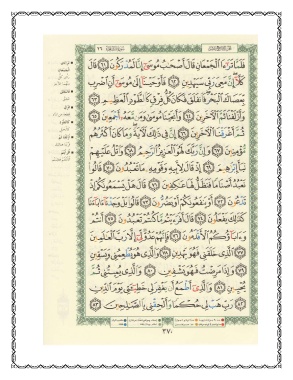 فَلَمَّا تَرَٰٓءَا ٱلْجَمْعَانِ قَالَ أَصْحَٰبُ مُوسَىٰٓ إِنَّا لَمُدْرَكُونَ ٦١ قَالَ
كَلَّآ إِنَّ مَعِىَ رَبِّى سَيَهْدِينِ ٦٢ فَأَوْحَيْنَآ إِلَىٰ مُوسَىٰٓ أَنِ ٱضْرِب
بِّعَصَاكَ ٱلْبَحْرَ فَٱنفَلَقَ فَكَانَ كُلُّ فِرْقٍ كَٱلطَّوْدِ ٱلْعَظِيمِ ٦٣
وَأَزْلَفْنَا ثَمَّ ٱلْءَاخَرِينَ ٦٤ وَأَنجَيْنَا مُوسَىٰ وَمَن مَّعَهُۥٓ أَجْمَعِينَ ٦٥
ثُمَّ أَغْرَقْنَا ٱلْءَاخَرِينَ ٦٦ إِنَّ فِى ذَٰلِكَ لَءَايَةً وَمَا كَانَ أَكْثَرُهُم
مُّؤْمِنِينَ ٦٧ وَإِنَّ رَبَّكَ لَهُوَ ٱلْعَزِيزُ ٱلرَّحِيمُ ٦٨ وَٱتْلُ عَلَيْهِمْ
نَبَأَ إِبْرَٰهِيمَ ٦٩ إِذْ قَالَ لِأَبِيهِ وَقَوْمِهِۦ مَا تَعْبُدُونَ ٧٠ قَالُوا۟
نَعْبُدُ أَصْنَامًا فَنَظَلُّ لَهَا عَٰكِفِينَ ٧١ قَالَ هَلْ يَسْمَعُونَكُمْ إِذْ
تَدْعُونَ ٧٢ أَوْ يَنفَعُونَكُمْ أَوْ يَضُرُّونَ ٧٣ قَالُوا۟ بَلْ وَجَدْنَآ ءَابَآءَنَا
كَذَٰلِكَ يَفْعَلُونَ ٧٤ قَالَ أَفَرَءَيْتُم مَّا كُنتُمْ تَعْبُدُونَ ٧٥ أَنتُمْ
وَءَابَآؤُكُمُ ٱلْأَقْدَمُونَ ٧٦ فَإِنَّهُمْ عَدُوٌّ لِّىٓ إِلَّا رَبَّ ٱلْعَٰلَمِينَ
٧٧ ٱلَّذِى خَلَقَنِى فَهُوَ يَهْدِينِ ٧٨ وَٱلَّذِى هُوَ يُطْعِمُنِى وَيَسْقِينِ
٧٩ وَإِذَا مَرِضْتُ فَهُوَ يَشْفِينِ ٨٠ وَٱلَّذِى يُمِيتُنِى ثُمَّ
يُحْيِينِ ٨١ وَٱلَّذِىٓ أَطْمَعُ أَن يَغْفِرَ لِى خَطِيٓـَٔتِى يَوْمَ ٱلدِّينِ
٨٢ رَبِّ هَبْ لِى حُكْمًا وَأَلْحِقْنِى بِٱلصَّٰلِحِينَ ٨٣
٣٧٠